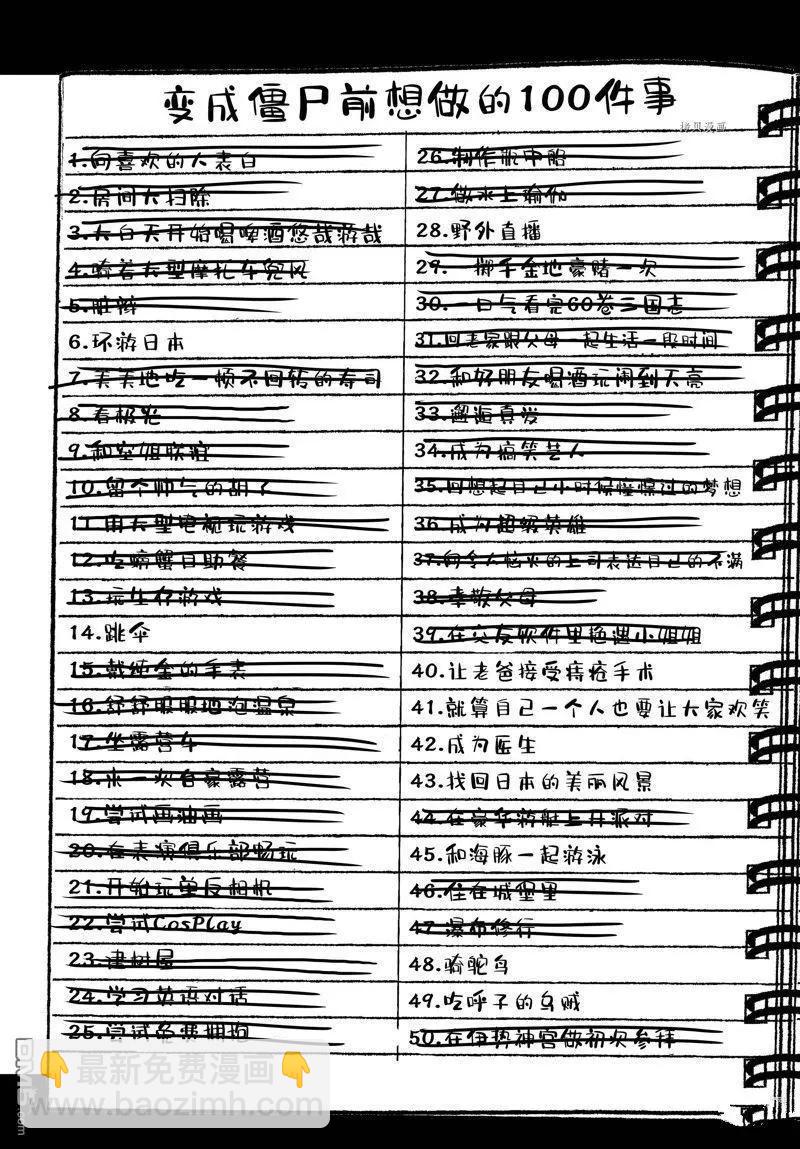 变成僵尸前想做的100件事
拷贝漫画
1.向喜欢的人表白
2.房间大扫除
3.大白天开始喝啤酒悠哉游哉
4.骑着大型摩托车兜风
5.脏辫
6.环游日本
7.美美地吃一顿不回转的寿司
8.看极光
9.和空姐联谊
10.留个帅气的胡子
11.用大型电视玩游戏
12.吃螃蟹自助餐
13.玩生存游戏
14.跳伞
15.戴纯金的手表
16.舒舒服服地泡温泉
17.坐露营车
18.来一次自豪露营
19.尝试画油画
20.在表演俱乐部畅玩
21.开始玩单反相机
22.尝试CosPlay
23.建树屋
24.学习英语对话
25.尝试免费拥抱
26.制作瓶中船
27.做水上瑜伽
28.野外直播
29.一掷千金地豪赌一次
30.一口气看完60卷三国志
31.回老家跟父母一起生活一段时间
32.和好朋友喝酒玩闹到天亮
33.邂逅真爱
34.成为搞笑艺人
35.回想起自己小时候憧憬过的梦想
36.成为超级英雄
37.向令人恼火的上司表达自己的不满
38.孝敬父母
39.在交友软件里艳遇小姐姐
40.让老爸接受痔疮手术
41.就算自己一个人也要让大家欢笑
42.成为医生
43.找回日本的美丽风景
44.在豪华游艇上开派对
45.和海豚一起游泳
46.住在城堡里
47.瀑布修行
48.骑鸵鸟
49.吃呼子的乌贼
50.在伊势神宫做初次参拜
👇最新免费漫画👇
www.baozimh.com